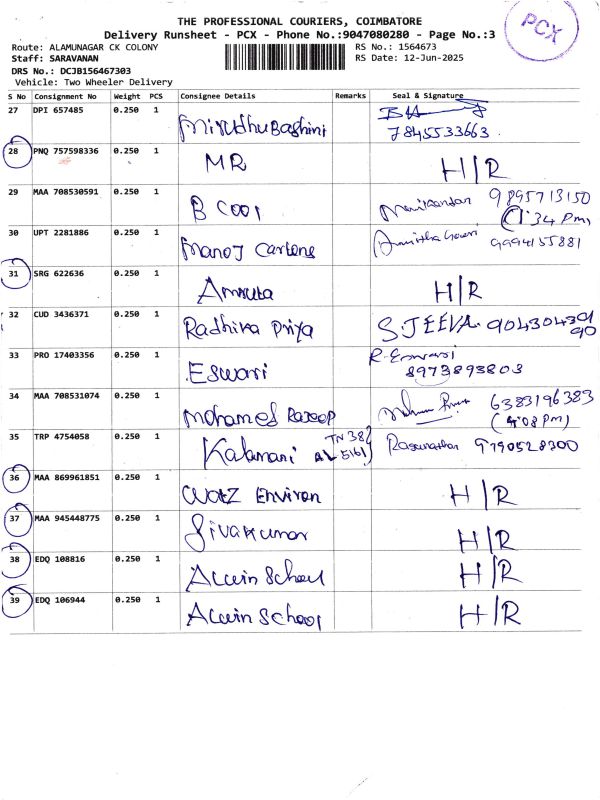 THE PROFESSIONAL COURIERS, COIMBATORE
Delivery Runsheet - PCX - Phone No.:9047080280 - Page No.:3
PCX
Route: ALAMUNAGAR CK COLONY
RS No.: 1564673
Staff: SARAVANAN
RS Date: 12-Jun-2025
DRS No.: DCJB156467303
Vehicle: Two Wheeler Delivery
S No Consignment No Weight PCS Consignee Details Remarks Seal & Signature
27 DPI 657485 0.250 1 MirudhuBashini
7845533663
28 PNQ 757598336 0.250 1 MR H/R
29 MAA 708530591 0.250 1 B Cool Manikandan 9895713150
(1:34 PM)
30 UPT 2281886 0.250 1 Manoj Cartens 9994155881
31 SRG 622636 0.250 1 Amruta H/R
32 CUD 3436371 0.250 1 Radhika Priya S.JEEVA.
33 PRO 17403356 0.250 1 Eswari R. Eswari
8973893803
34 MAA 708531074 0.250 1 Mohamed 6383196383
(4:08 PM)
35 TRP 4754058 0.250 1 Kalamani TN 38 9790528300
AL 5161
36 MAA 869961851 0.250 1 WatZ Environ H/R
37 MAA 945448775 0.250 1 Sivakumar H/R
38 EDQ 108816 0.250 1 Alwin School H/R
39 EDQ 106944 0.250 1 Alwin School H/R